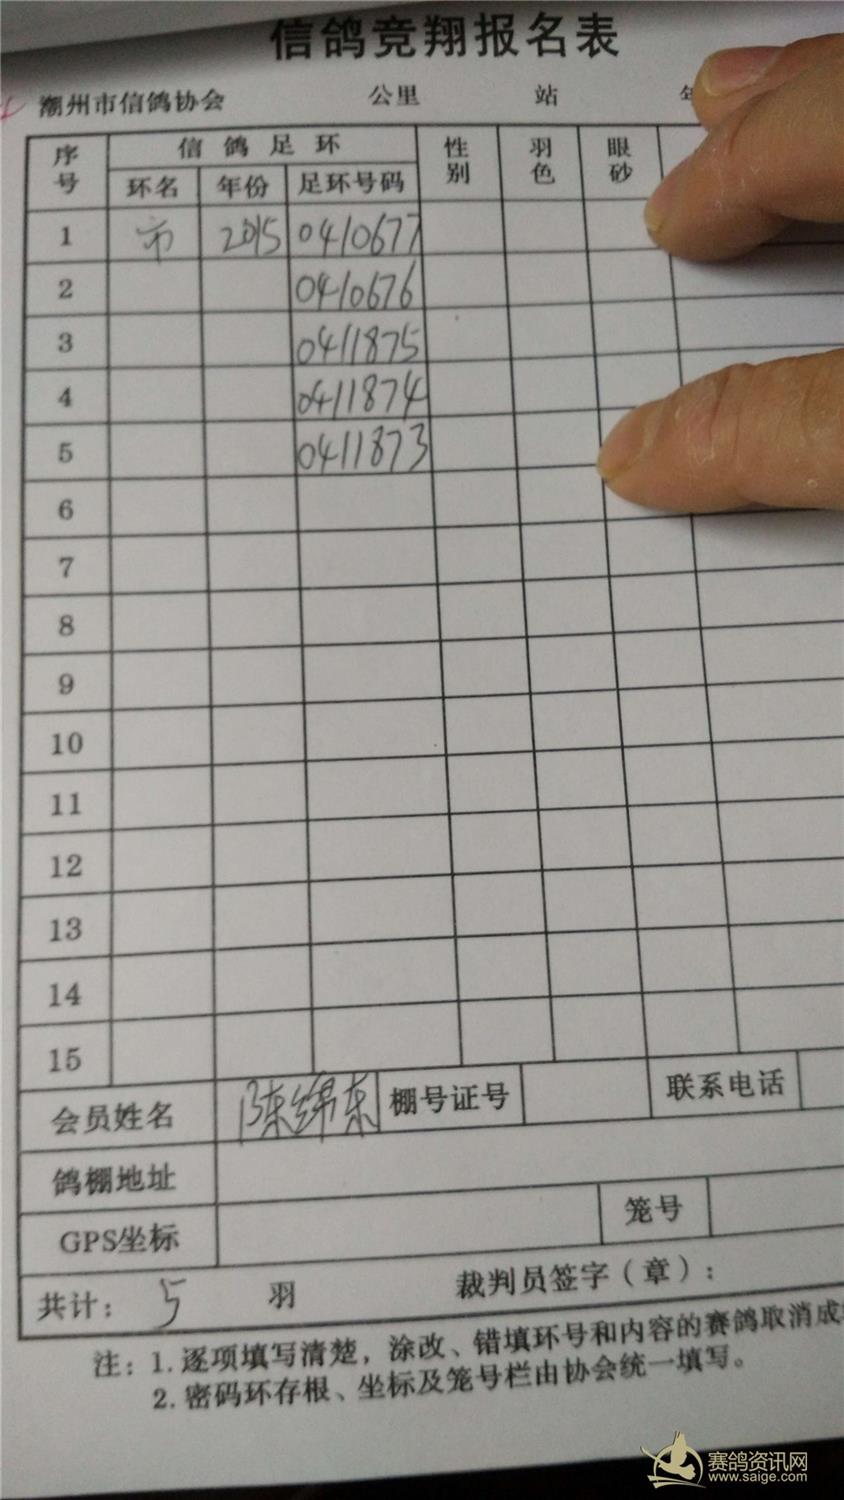 信鸽竞翔报名表
潮州市信鸽协会 公里 站 年
序号 信鸽足环 性别 羽色 眼砂
环名 年份 足环号码
1 市 2015 0410677
2 0410676
3 0411875
4 0411874
5 0411873
6
7
8
9
10
11
12
13
14
15
会员姓名 陈绵东 棚号证号 联系电话
鸽棚地址
GPS坐标 笼号
共计: 5 羽 裁判员签字(章):
注: 1. 逐项填写清楚，涂改、错填环号和内容的赛鸽取消成
2. 密码环存根、坐标及笼号栏由协会统一填写。
赛鸽资讯网
www.saige.com